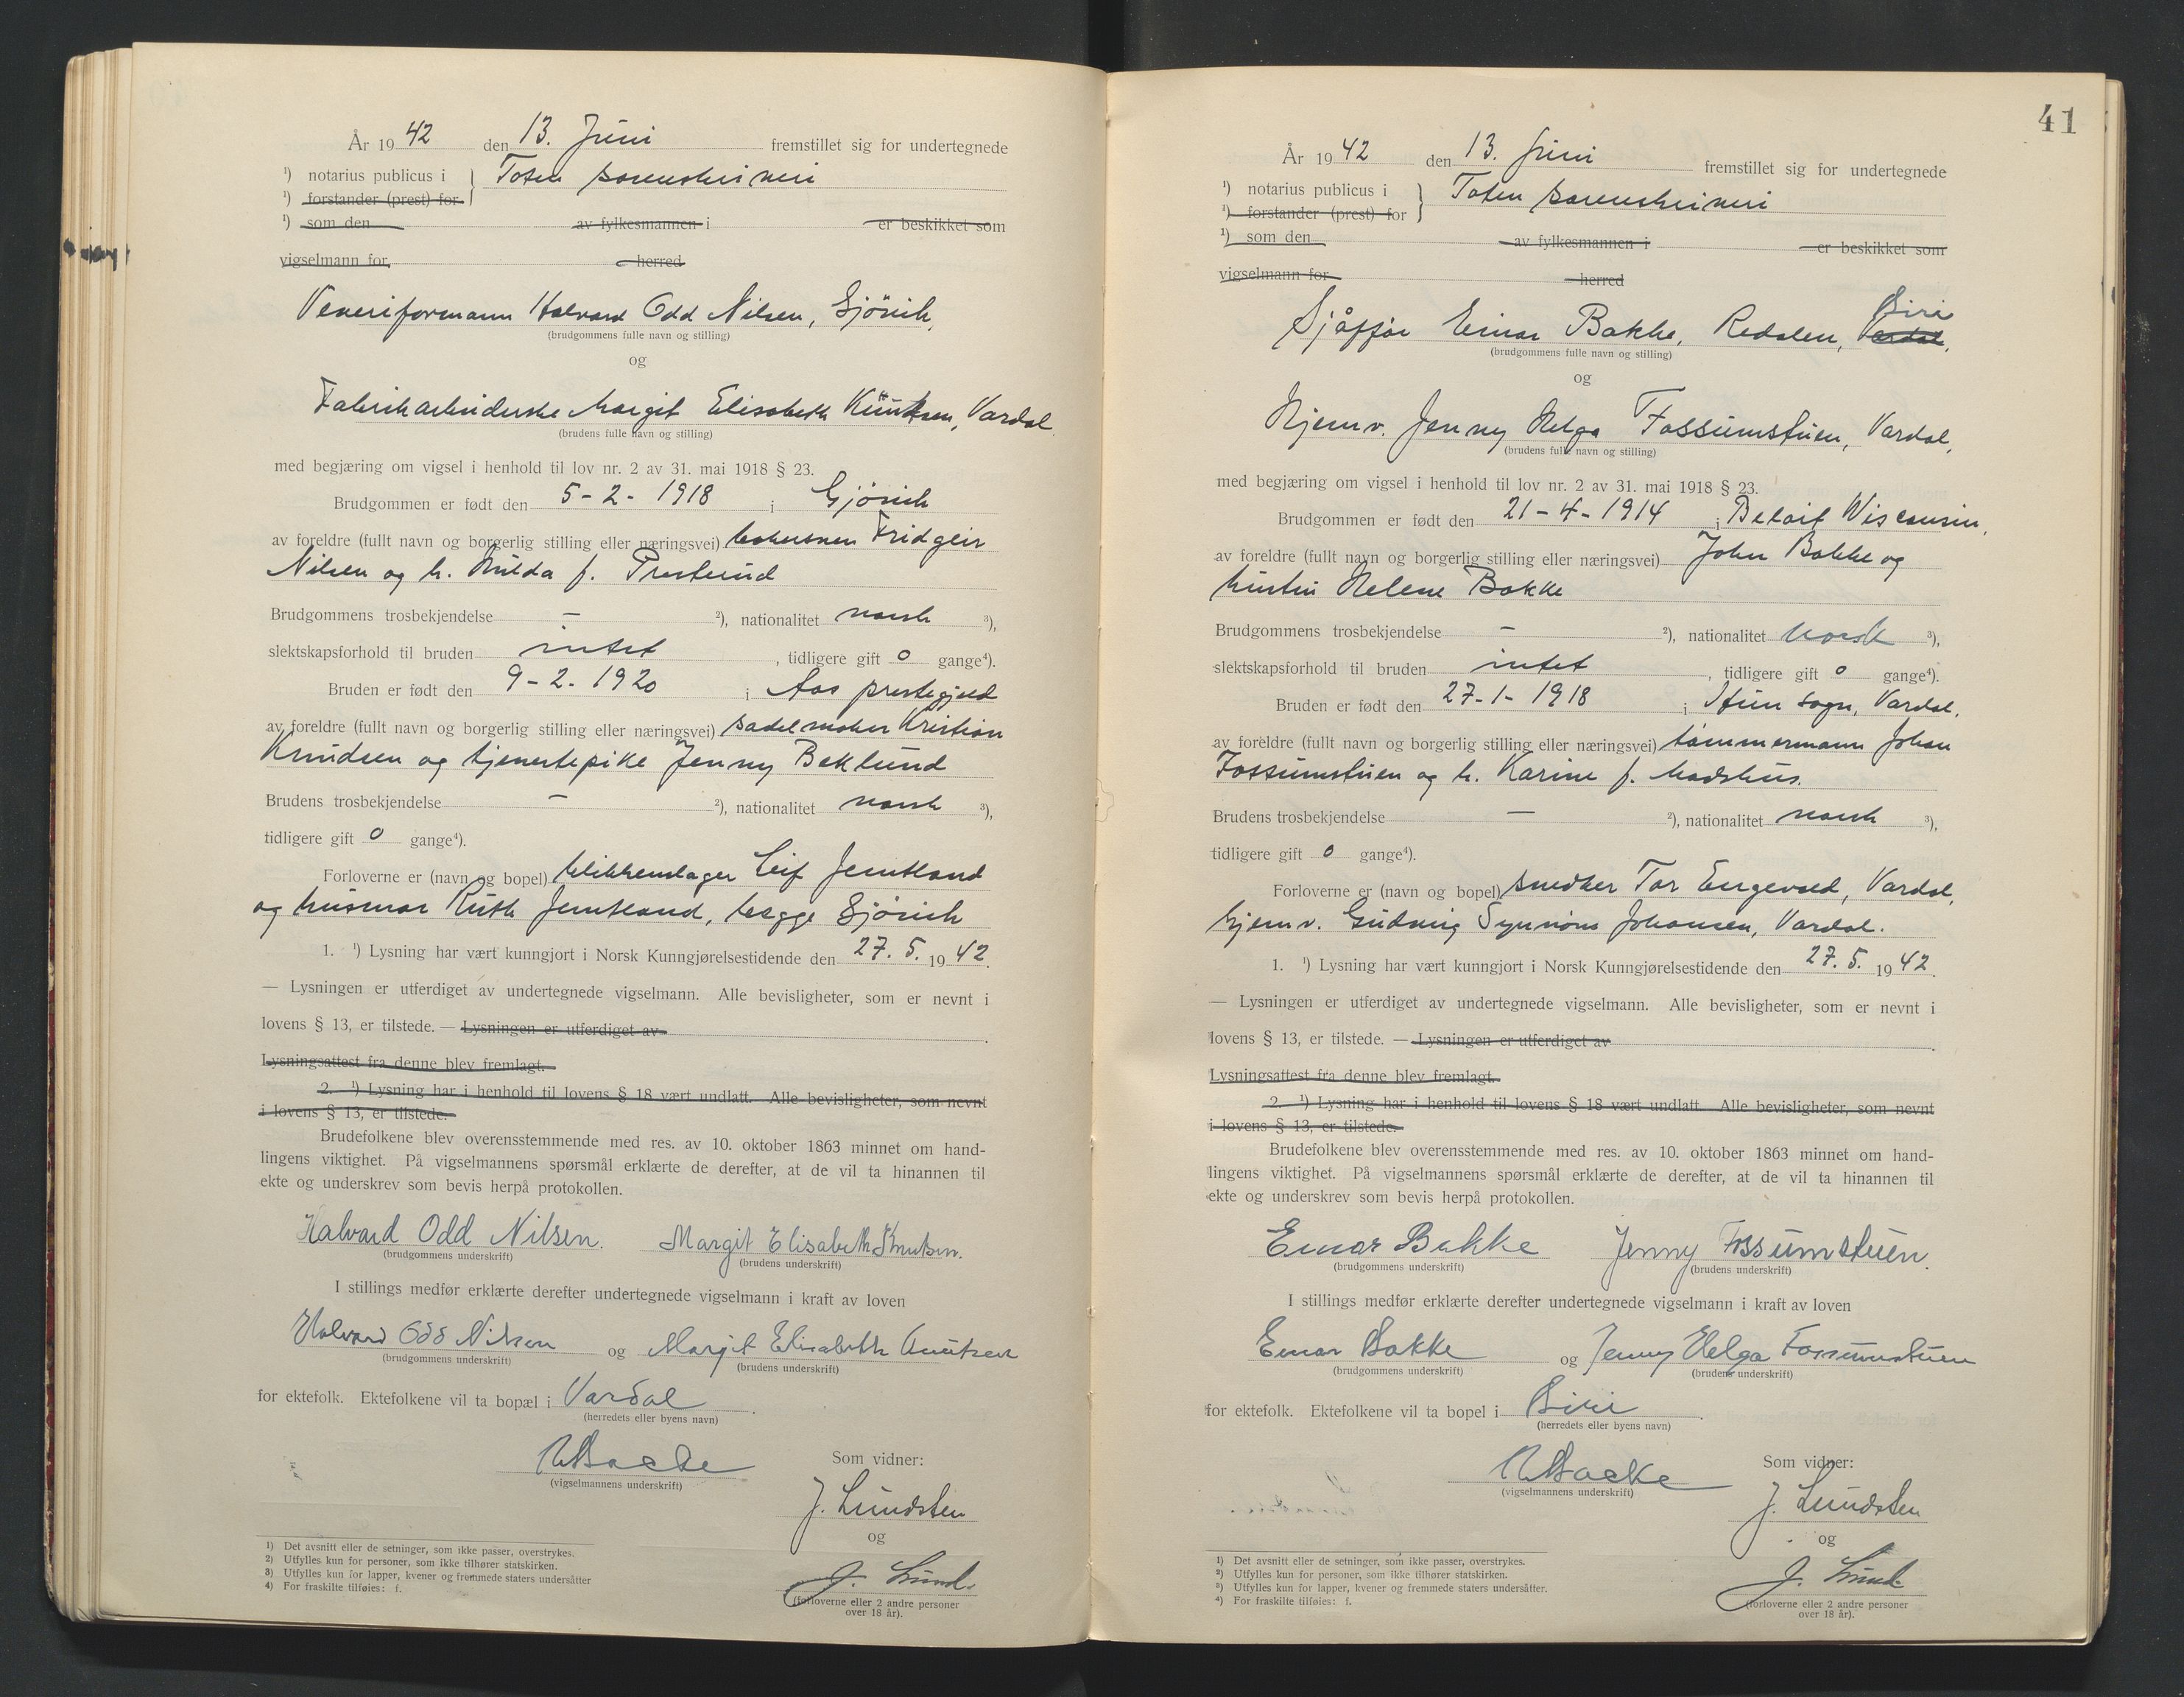 År 1942 den 13. Juni fremstillet sig for undertegnede
¹) notarius publicus i } Toten sorenskriveri
¹) forstander (prest) for
¹) som den av fylkesmannen i er beskikket som
vigselmann for herred
Veveriformann Halvard Odd Nilsen, Gjövik,
(brudgommens fulle navn og stilling)
og
Fabrikarbeiderske Margit Elisabeth Knutsen, Vardal
(brudens fulle navn og stilling)
med begjæring om vigsel i henhold til lov nr. 2 av 31. mai 1918 § 23.
Brudgommen er født den 5-2-1918 i Gjövik
av foreldre (fullt navn og borgerlig stilling eller næringsvei) Fridgeir
Nilsen og h. Hulda f. Presterud
Brudgommens trosbekjendelse — ²), nationalitet norsk ³),
slektskapsforhold til bruden intet, tidligere gift 0 gange⁴).
Bruden er født den 9-2-1920 i Aas prestegjeld
av foreldre (fullt navn og borgerlig stilling eller næringsvei) sadelmaker Kristian
Knudsen og tjenestepike Jenny Beklund
Brudens trosbekjendelse — ²), nationalitet norsk ³),
tidligere gift 0 gange⁴).
Forloverne er (navn og bopel) blikkenslager Leif Jemtland
og husmor Ruth Jemtland, begge Gjövik
1. ¹) Lysning har vært kunngjort i Norsk Kunngjørelsestidende den 27. 5. 1942.
— Lysningen er utferdiget av undertegnede vigselmann. Alle bevisligheter, som er nevnt i
lovens § 13, er tilstede. — Lysningen er utferdiget av
Lysningsattest fra denne blev fremlagt.
2. ¹) Lysning har i henhold til lovens § 18 vært undlatt. Alle bevisligheter, som nevnt
i lovens § 13, er tilstede.
Brudefolkene blev overensstemmende med res. av 10. oktober 1863 minnet om hand-
lingens viktighet. På vigselmannens spørsmål erklærte de derefter, at de vil ta hinannen til
ekte og underskrev som bevis herpå protokollen.
Halvard Odd Nilsen. Margit Elisabeth Knutsen.
(brudgommens underskrift) (brudens underskrift)
I stillings medfør erklærte derefter undertegnede vigselmann i kraft av loven
Halvard Odd Nilsen og Margit Elisabeth Knutsen
(brudgommens underskrift) (brudens underskrift)
for ektefolk. Ektefolkene vil ta bopæl i Vardal.
(herredets eller byens navn)
(vigselmannens underskrift)
Som vidner:
J. Lundsten
og
J. Lund.
(forloverne eller 2 andre personer
over 18 år).
1) Det avsnitt eller de setninger, som ikke passer, overstrykes.
2) Utfylles kun for personer, som ikke tilhører statskirken.
3) Utfylles kun for lapper, kvener og fremmede staters undersåtter
4) For fraskilte tilføies: f.
41
År 1942 den 13. Juni fremstillet sig for undertegnede
¹) notarius publicus i } Toten sorenskriveri
¹) forstander (prest) for
¹) som den av fylkesmannen i er beskikket som
vigselmann for herred
Biri
Sjåffør Einar Bakke, Redalen, Vardal,
(brudgommens fulle navn og stilling)
og
Hjemv. Jenny Helga Fossumstuen, Vardal,
(brudens fulle navn og stilling)
med begjæring om vigsel i henhold til lov nr. 2 av 31. mai 1918 § 23.
Brudgommen er født den 21-4-1914 i Beloit Wisconsin,
av foreldre (fullt navn og borgerlig stilling eller næringsvei) John Bakke og
hustru Helene Bakke
Brudgommens trosbekjendelse — ²), nationalitet norsk ³),
slektskapsforhold til bruden intet, tidligere gift 0 gange⁴).
Bruden er født den 27-1-1918 i Hun sogn, Vardal,
av foreldre (fullt navn og borgerlig stilling eller næringsvei) tømmermann Johan
Fossumstuen og h. Karine f. Madshus.
Brudens trosbekjendelse — ²), nationalitet norsk ³),
tidligere gift 0 gange⁴).
Forloverne er (navn og bopel) snedker Tor Engevold, Vardal,
hjemv. Gudveig Synnöve Johansen, Vardal.
1. ¹) Lysning har vært kunngjort i Norsk Kunngjørelsestidende den 27. 5. 1942.
— Lysningen er utferdiget av undertegnede vigselmann. Alle bevisligheter, som er nevnt i
lovens § 13, er tilstede. — Lysningen er utferdiget av
Lysningsattest fra denne blev fremlagt.
2. ¹) Lysning har i henhold til lovens § 18 vært undlatt. Alle bevisligheter, som nevnt
i lovens § 13, er tilstede.
Brudefolkene blev overensstemmende med res. av 10. oktober 1863 minnet om hand-
lingens viktighet. På vigselmannens spørsmål erklærte de derefter, at de vil ta hinannen til
ekte og underskrev som bevis herpå protokollen.
Einar Bakke Jenny Fossumstuen.
(brudgommens underskrift) (brudens underskrift)
I stillings medfør erklærte derefter undertegnede vigselmann i kraft av loven
Einar Bakke og Jenny Helga Fossumstuen
(brudgommens underskrift) (brudens underskrift)
for ektefolk. Ektefolkene vil ta bopel i Biri.
(herredets eller byens navn)
(vigselmannens underskrift)
Som vidner:
J. Lundsten
og
J. Lund
(forloverne eller 2 andre personer
over 18 år).
¹) Det avsnitt eller de setninger, som ikke passer, overstrykes.
²) Utfylles kun for personer, som ikke tilhører statskirken.
³) Utfylles kun for lapper, kvener og fremmede staters undersåtter.
⁴) For fraskilte tilføies: f.